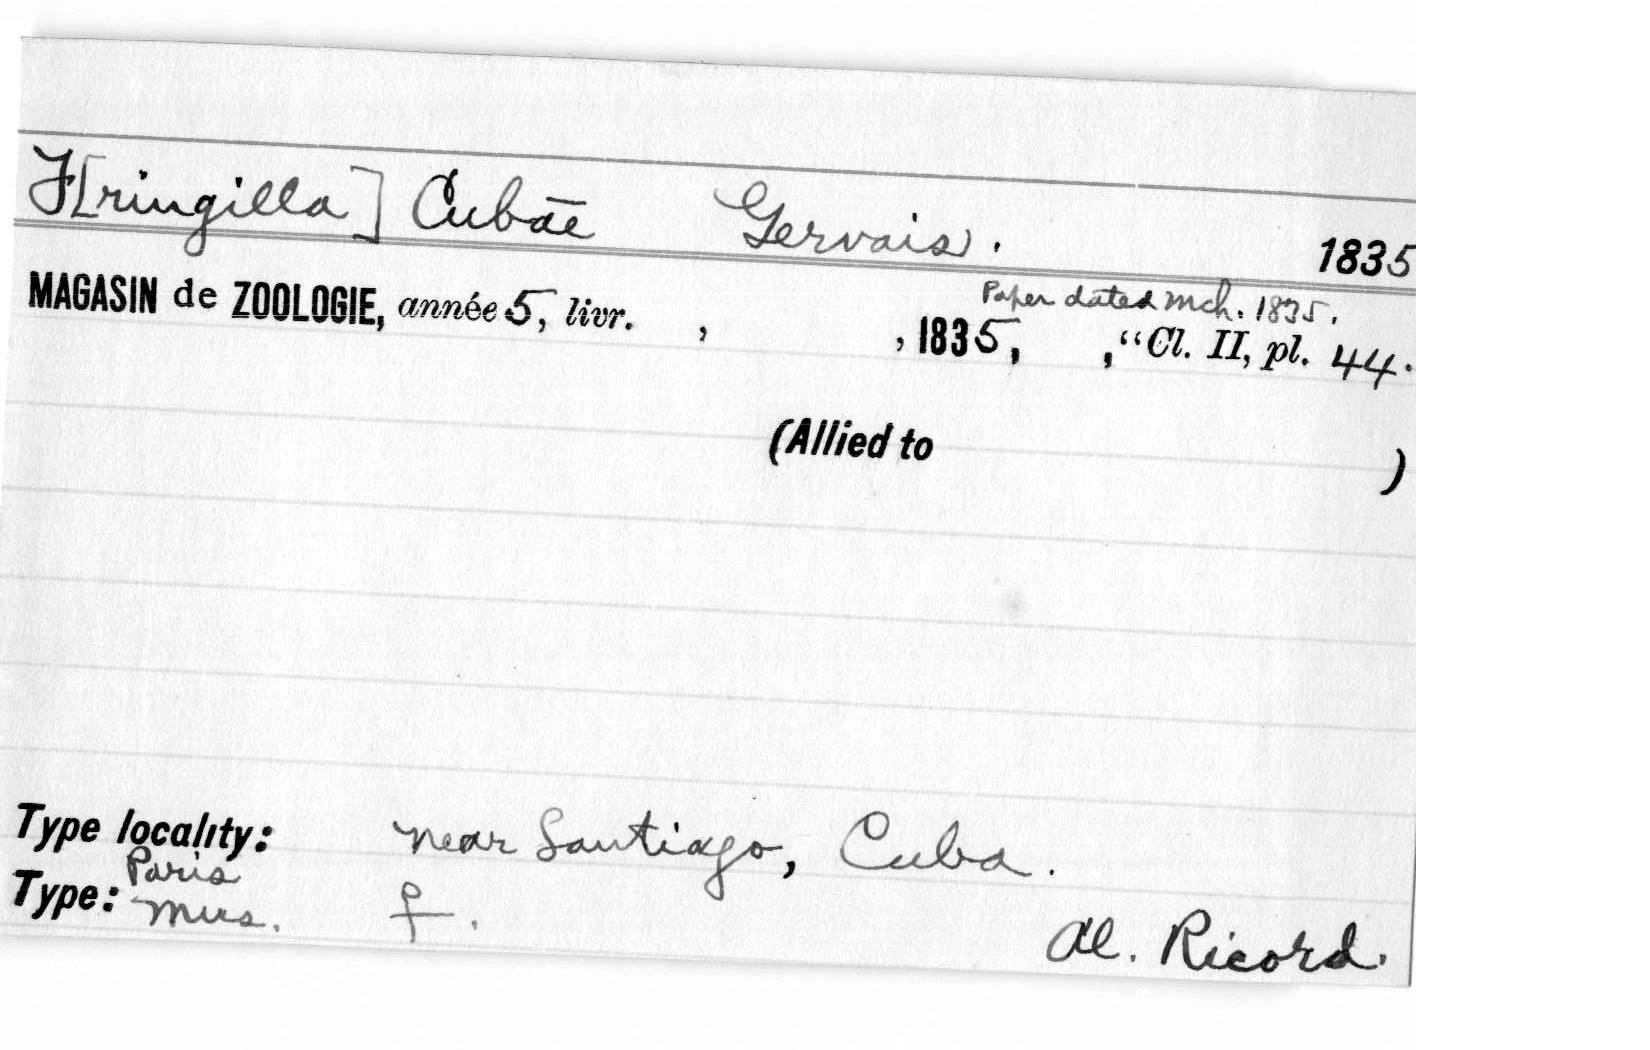 F[ringilla] Cubæ Gervais. 1835
Paper dated Mch. 1835.
MAGASIN de ZOOLOGIE, année 5, livr. , , 1835, , "Cl. II, pl. 44.
(Allied to )
Type locality: near Santiago, Cuba.
Type: Paris Mus. ♀. Al. Ricord.